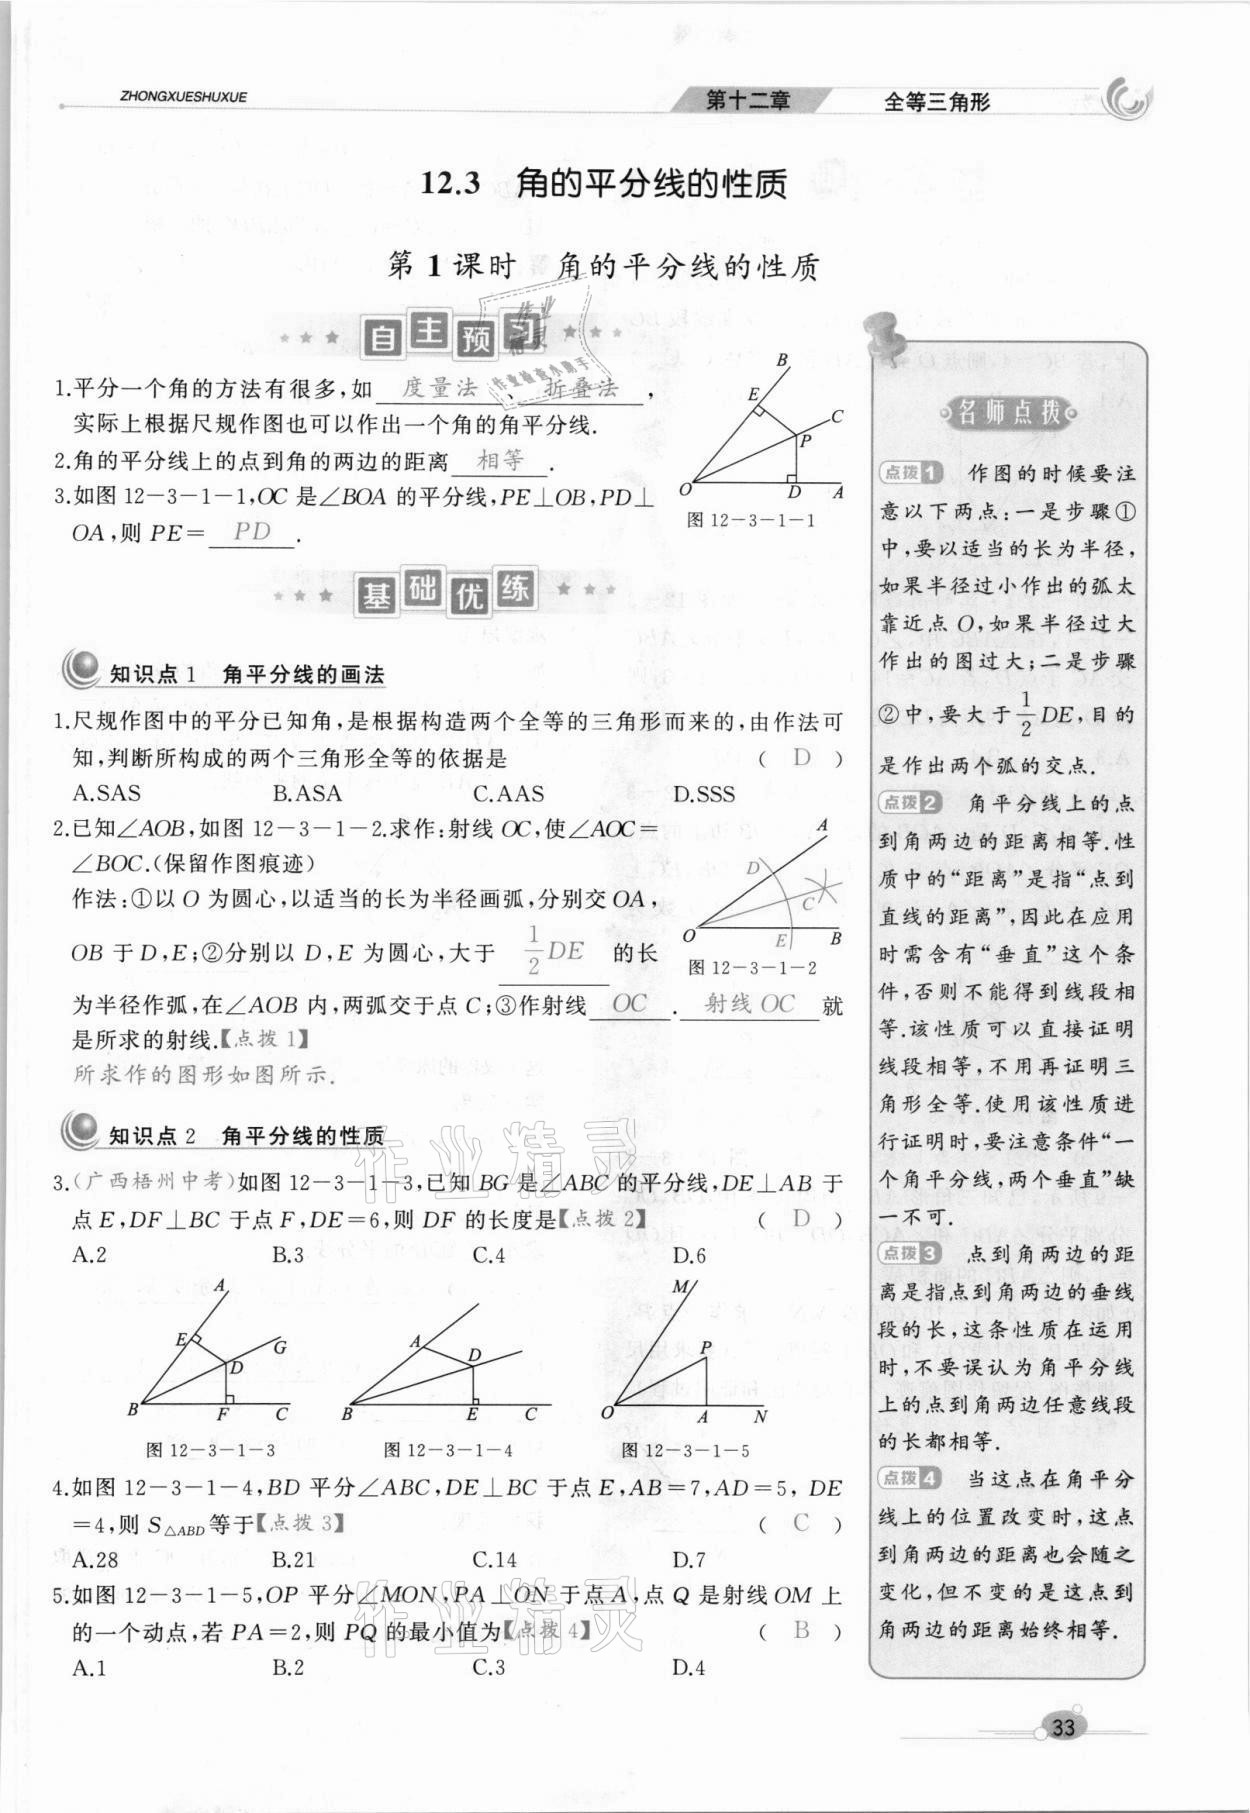 ZHONGXUESHUXUE
第十二章 全等三角形
12.3 角的平分线的性质
第1课时 角的平分线的性质
自主预习
1.平分一个角的方法有很多,如 度量法 、 折叠法 ,
实际上根据尺规作图也可以作出一个角的角平分线.
2.角的平分线上的点到角的两边的距离 相等 .
3.如图12-3-1-1,OC是∠BOA的平分线,PE⊥OB,PD⊥
OA,则PE= PD .
B
E
C
P
O
D
A
图12-3-1-1
基础优练
知识点1 角平分线的画法
1.尺规作图中的平分已知角,是根据构造两个全等的三角形而来的,由作法可
知,判断所构成的两个三角形全等的依据是 ( D )
A.SAS B.ASA C.AAS D.SSS
2.已知∠AOB,如图12-3-1-2.求作:射线OC,使∠AOC=
∠BOC.(保留作图痕迹)
作法:①以O为圆心,以适当的长为半径画弧,分别交OA,
OB于D,E;②分别以D,E为圆心,大于 1/2 DE 的长
为半径作弧,在∠AOB内,两弧交于点C;③作射线 OC . 射线OC 就
是所求的射线.【点拨1】
所求作的图形如图所示.
A
D
C
O
E
B
图12-3-1-2
知识点2 角平分线的性质
3.(广西梧州中考)如图12-3-1-3,已知BG是∠ABC的平分线,DE⊥AB于
点E,DF⊥BC于点F,DE=6,则DF的长度是【点拨2】 ( D )
A.2 B.3 C.4 D.6
A
E
G
D
B
F
C
图12-3-1-3
A
D
B
E
C
图12-3-1-4
M
P
O
A
N
图12-3-1-5
4.如图12-3-1-4,BD平分∠ABC,DE⊥BC于点E,AB=7,AD=5,DE
=4,则S△ABD等于【点拨3】 ( C )
A.28 B.21 C.14 D.7
5.如图12-3-1-5,OP平分∠MON,PA⊥ON于点A,点Q是射线OM上
的一个动点,若PA=2,则PQ的最小值为【点拨4】 ( B )
A.1 B.2 C.3 D.4
名师点拨
点拨1 作图的时候要注
意以下两点:一是步骤①
中,要以适当的长为半径,
如果半径过小作出的弧太
靠近点O,如果半径过大
作出的图过大;二是步骤
②中,要大于1/2 DE,目的
是作出两个弧的交点.
点拨2 角平分线上的点
到角两边的距离相等.性
质中的“距离”是指“点到
直线的距离”,因此在应用
时需含有“垂直”这个条
件,否则不能得到线段相
等.该性质可以直接证明
线段相等,不用再证明三
角形全等.使用该性质进
行证明时,要注意条件“一
个角平分线,两个垂直”缺
一不可.
点拨3 点到角两边的距
离是指点到角两边的垂线
段的长,这条性质在运用
时,不要误认为角平分线
上的点到角两边任意线段
的长都相等.
点拨4 当这点在角平分
线上的位置改变时,这点
到角两边的距离也会随之
变化,但不变的是这点到
角两边的距离始终相等.
作业精灵
作业检查小助手
作业精灵
作业精灵
33